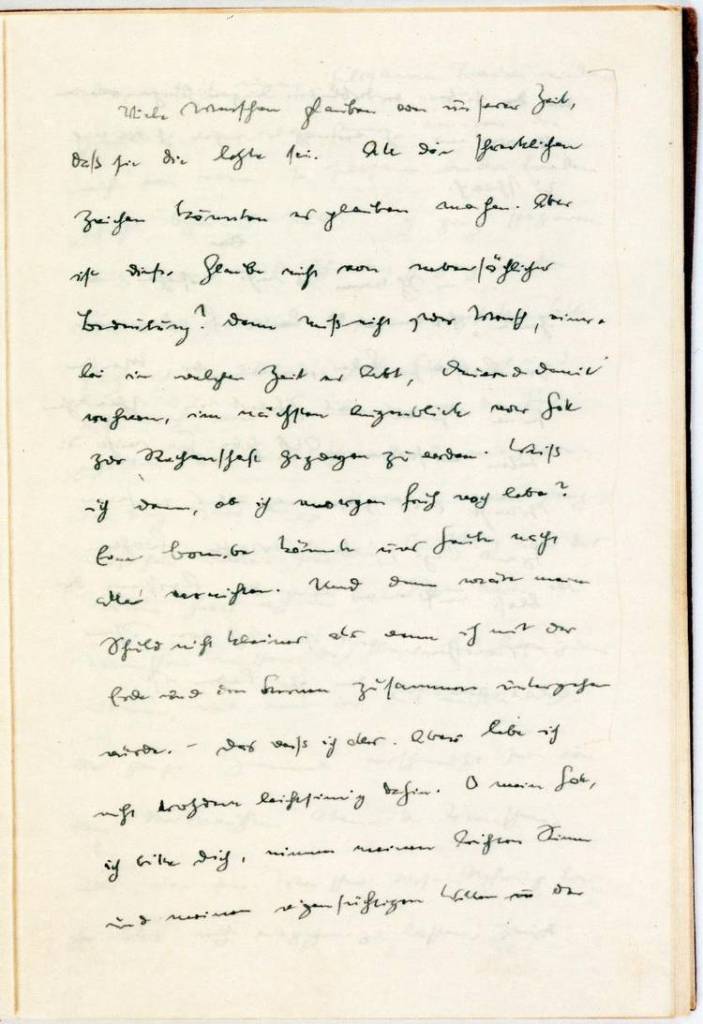 Viele Menschen glauben von unserer Zeit,
daß sie die letzte sei. Alle die schrecklichen
Zeichen könnten es glauben machen. Aber
ist dieser Glaube nicht von nebensächlicher
Bedeutung? Denn muß nicht jeder Mensch, einer-
lei in welcher Zeit er lebt, dauernd damit
rechnen, im nächsten Augenblick von Gott
zur Rechenschaft gezogen zu werden. Weiß
ich denn, ob ich morgen früh noch lebe?
Eine Bombe könnte uns heute nacht
alle vernichten. Und dann wäre meine
Schuld nicht kleiner als wenn ich mit der
Erde und den Sternen zusammen untergehen
würde. – Das weiß ich alles. Aber lebe ich
nicht trotzdem leichtsinnig dahin. O mein Gott,
ich bitte dich, nimm meinen leichten Sinn
und meinen eigensüchtigen Willen